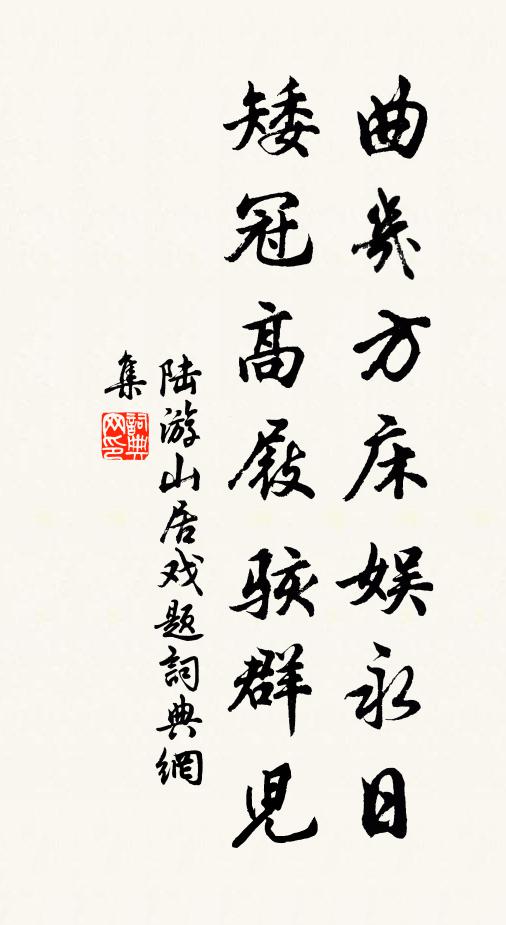 曲几方床娱永日
矮冠高屐骇群児
陆游山居戏题詞典網
集
詞典網印